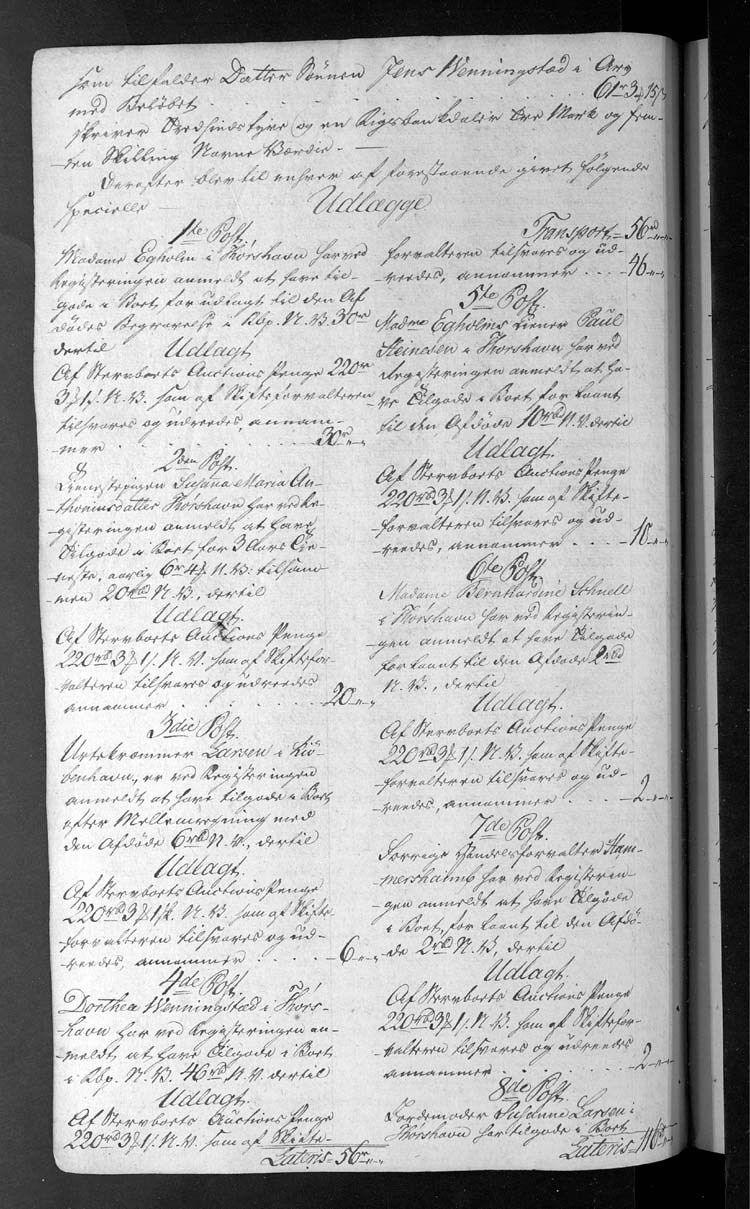 som tilfalder Datter Sönnen Jens Wenningstæd i Arv
med Beløbet . . . . . . 61 r 3 ꝳ 15 ß
skriver Tredsindstyve og en Rigsbankdaler Tre Mark og fem-
ten Skilling Navne Værdie. —
Derefter blev til enhver af forestaaende givet følgende
specielle — Udlægge
1te Post.
Madame Egholm i Thorshavn har ved
Registeringen anmeldt at have til-
gode i Boet for udlagt til den Af
dødes Begravelse i Rbp. N. V. 30 r
dertil Udlagt
Af Stervboets Auctions Penge 220 r
3 ꝳ 1 ß. N. V. som af Skifteforvalteren
tilsvares og udreedes annam-
mer . . . . 30 r „ „
2den Post.
Tienestepigen Susanna Maria An-
thoniusdatter Thorshavn har ved Re-
gisteringen anmeldt at have
Tilgode i Boet for 3 Aars Tie-
neste, aarlig 6 r 4 ꝳ N. V. tilsam-
men 20 rbd N. V., dertil
Udlagt.
Af Stervboets Auctions Penge
220 rbd 3 ꝳ 1 ß. N. V. som af Skiftefor-
valteren tilsvares og udreedes
annammer . . . . 20 „ „
3die Post.
Urtekræmmer Larsen i Kiö-
benhavn, er ved Registeringen
anmeldt at have tilgode i Boet
efter Mellemregning med
den Afdöde 6 rbd N. V., dertil
Udlagt.
Af Stervboets Auctions Penge
220 rbd 3 ꝳ 1 ß. N. V. som af Skifte-
forvalteren tilsvares og ud-
reedes, annammer . . . . 6 „ „
4de Post.
Dorthea Wenningstæd i Thors-
havn har ved Registeringen an-
meldt at have Tilgode i Boet
i Rbp. N. V. 46 rbd N. V. dertil
Udlagt.
Af Stervboets Auctions Penge
220 rbd 3 ꝳ 1 ß. N. V. som af Skifte-
Lateris = 56 r „ „
Transport = 56 rd „ „
forvalteren tilsvares og ud-
reedes, annammer . . . 46 „ „
5te Post.
Madme Egholms Tiener Paul
Steinesen i Thorshavn har ved
Registeringen anmeldt at ha-
ve Tilgode i Boet for Laant
til den Afdöde 10 rbd N. V. dertil
Udlagt.
Af Stervboets Auctions Penge
220 rbd 3 ꝳ 1 ß. N. V. som af Skifte-
forvalteren tilsvares og ud-
reedes, annammer . . . 10 „ „
6te Post.
Madame Bernhardine Schnell
i Thorshavn har ved Registerin-
gen anmeldt at have Tilgode
for Laant til den Afdöde 2 rbd
N. V., dertil
Udlagt.
Af Stervboets Auctions Penge
220 rbd 3 ꝳ 1 ß. N. V. som af Skifte-
forvalteren tilsvares og ud-
reedes, annammer . . . 2 „ „
7de Post.
Forrige Handelsforvalter Ham-
mershaimb har ved Registerin-
gen anmeldt at have Tilgode
i Boet, for Laant til den Afdö-
de 2 rbd N. V., dertil
Udlagt.
Af Stervboets Auctions Penge
220 rbd 3 ꝳ 1 ß. N. V. som af Skiftefor-
valteren tilsvares og udreedes
annammer . . . . 2 „ „
8de Post.
Jordemoder Susanne Larsen i
Thorshavn har tilgode i Boet
Lateris = 116 rd